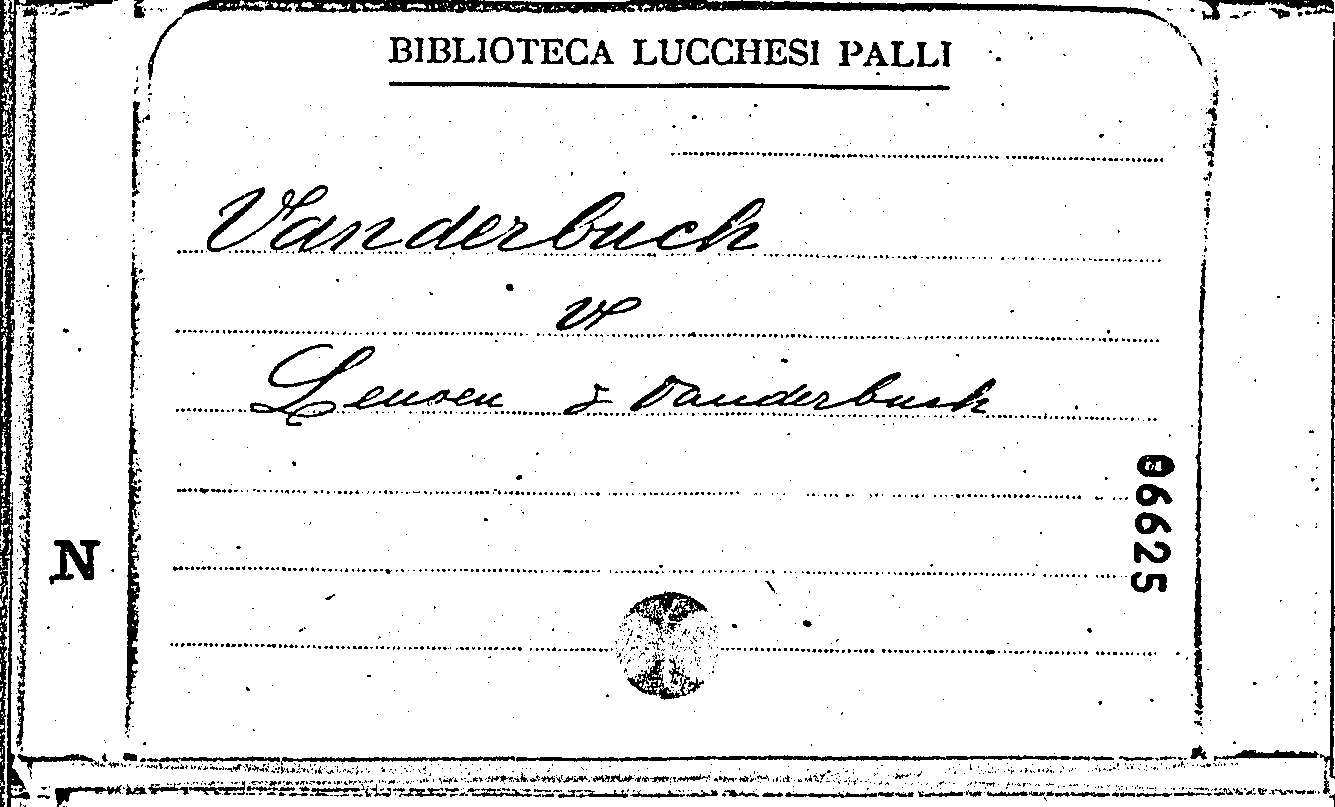 BIBLIOTECA LUCCHESI PALLI
Vanderbuch
V
Leusen & Vanderbusk
N
06625